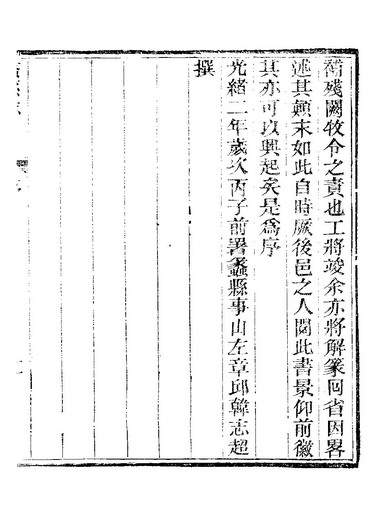 補殘闕牧令之責也工將竣余亦將解篆囘省因畧
述其顛末如此自時厥後邑之人閱此書景仰前徽
其亦可以興起矣是爲序
光緒二年歲次丙子前署蠡縣事山左章邱韓志超
撰